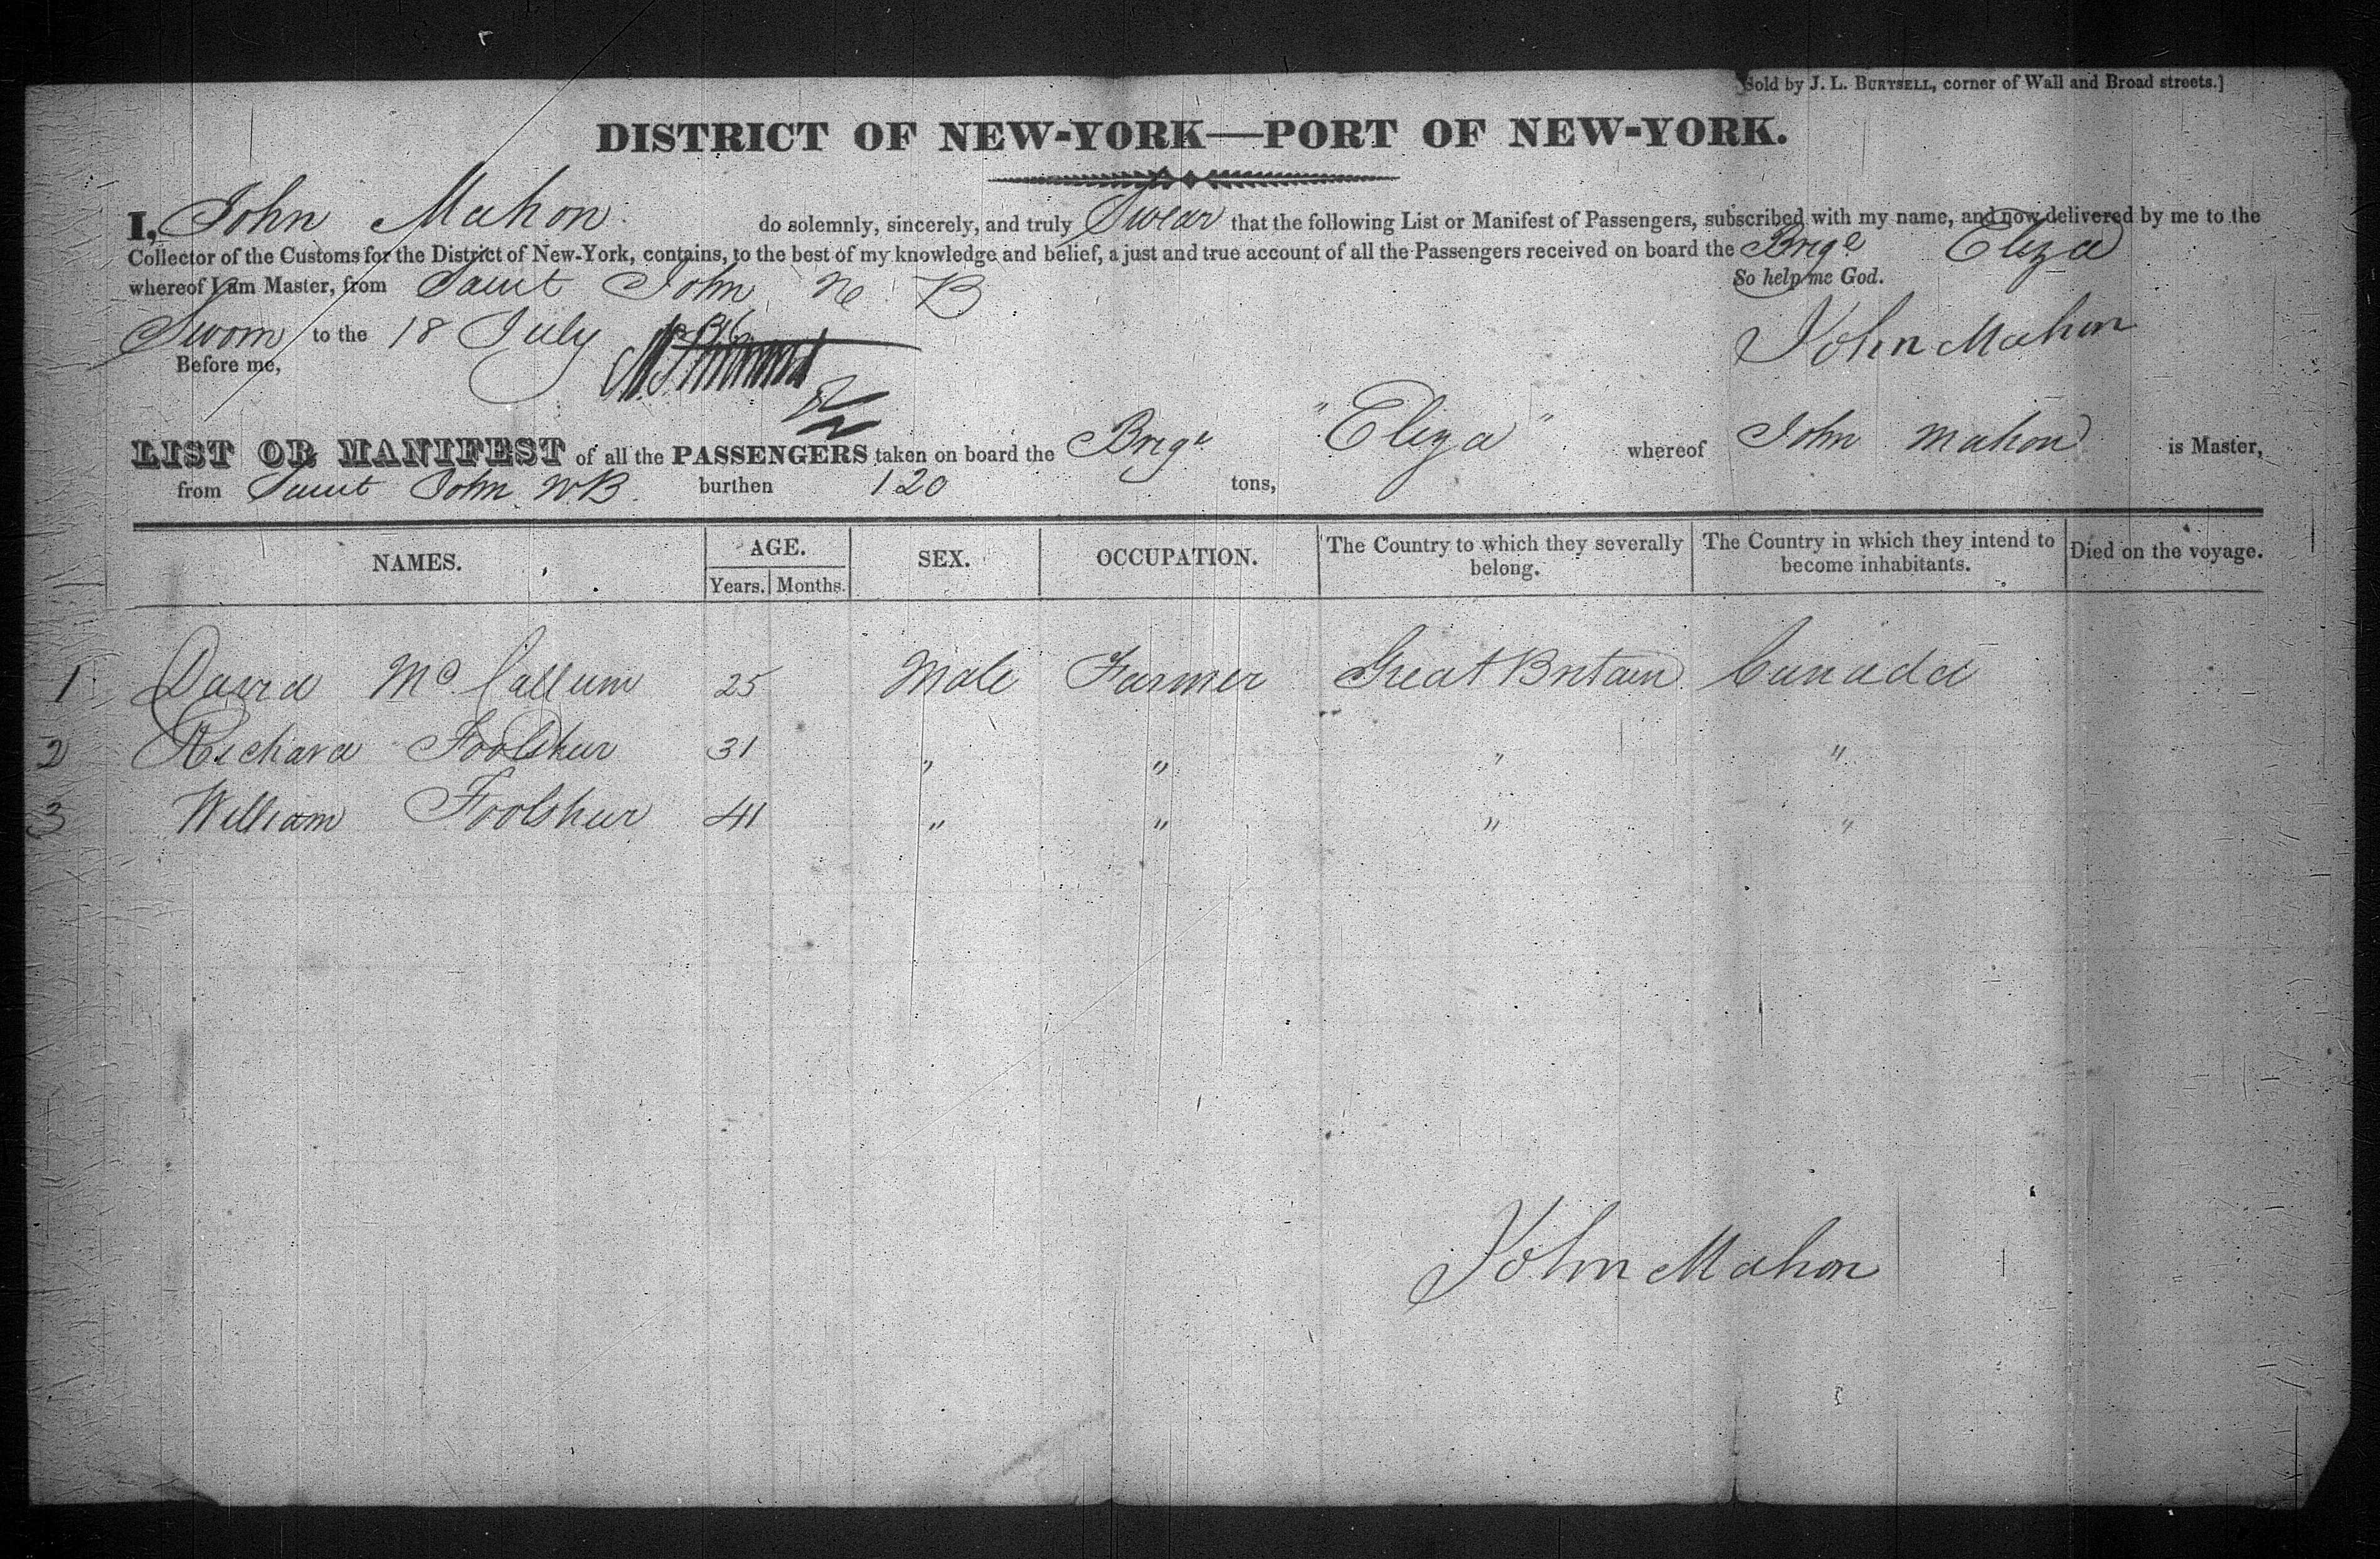 [Sold by J. L. BURTSELL, corner of Wall and Broad streets.]
DISTRICT OF NEW-YORK—PORT OF NEW-YORK.
I, John Mahon do solemnly, sincerely, and truly Swear that the following List or Manifest of Passengers, subscribed with my name, and now delivered by me to the
Collector of the Customs for the District of New-York, contains, to the best of my knowledge and belief, a just and true account of all the Passengers received on board the Brige Eliza
whereof I am Master, from Saint John N B So help me God.
Sworn to the 18 July John Mahon
Before me,
LIST OR MANIFEST of all the PASSENGERS taken on board the Brige "Eliza" whereof John Mahon is Master,
from Saint John NB. burthen 120 tons,
NAMES. AGE. SEX. OCCUPATION. The Country to which they severally belong. The Country in which they intend to become inhabitants. Died on the voyage.
Years. Months.
1 David McCallum 25 Male Farmer Great Britain Canada
2 Richard 31 " " " "
3 William 41 " " " "
John Mahon